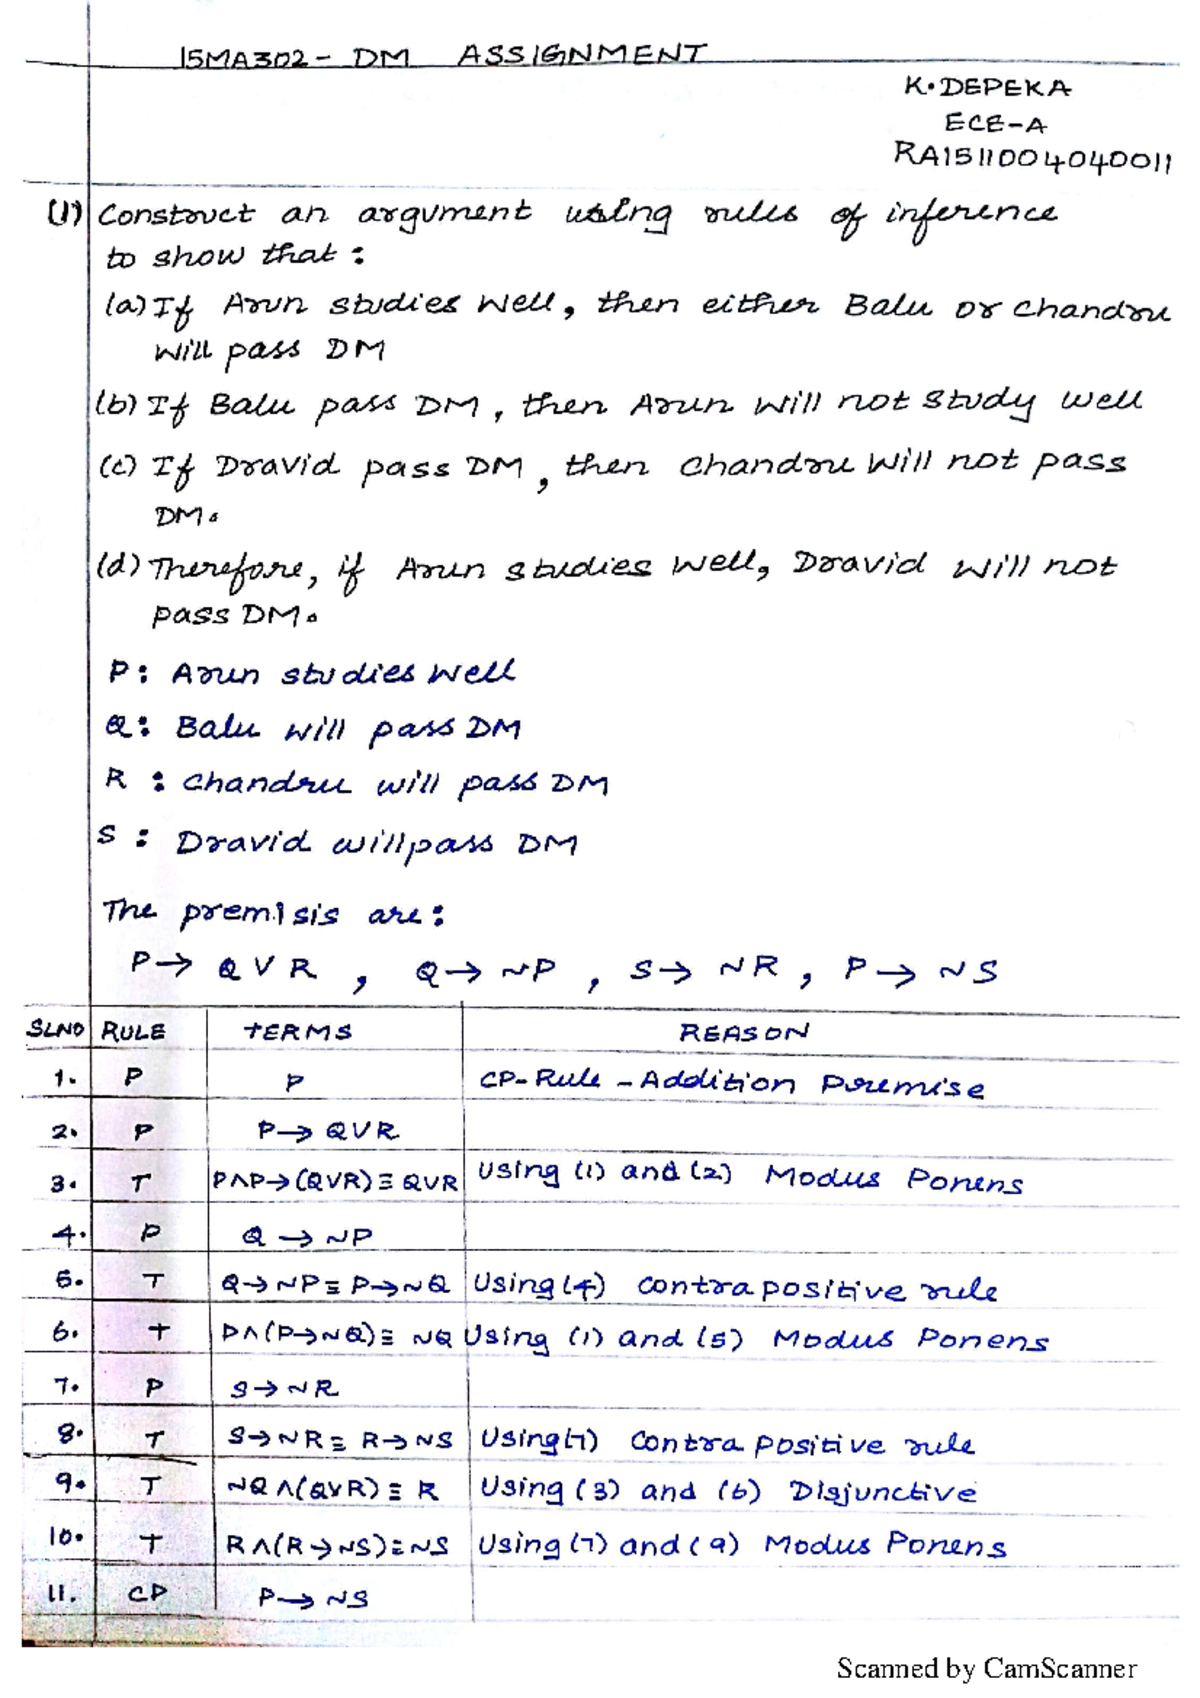 15MA302 - DM ASSIGNMENT
K. DEPEKA
ECE-A
RA1511004040011
(1) Construct an argument using rules of inference
to show that :
(a) If Arun studies well, then either Balu or Chandru
will pass DM
(b) If Balu pass DM, then Arun will not study well
(c) If Dravid pass DM, then Chandru will not pass
DM.
(d) Therefore, if Arun studies well, Dravid will not
pass DM.
P: Arun studies well
Q: Balu will pass DM
R : Chandru will pass DM
S : Dravid will pass DM
The premisis are:
P→ Q V R , Q→ ~P , S→ ~R , P→ ~S
SLNO RULE TERMS REASON
1. P P CP-Rule - Addition Premise
2. P P→ QVR
3. T P∧P→(QVR)≡QVR Using (1) and (2) Modus Ponens
4. P Q →~P
5. T Q→~P≡P→~Q Using (4) Contra positive rule
6. T P∧(P→~Q)≡ ~Q Using (1) and (5) Modus Ponens
7. P S→~R
8. T S→~R≡ R→~S Using (7) Contra positive rule
9. T ~Q∧(QVR)≡ R Using (3) and (6) Disjunctive
10. T R∧(R→~S)≡~S Using (7) and (9) Modus Ponens
11. CP P→~S
Scanned by CamScanner